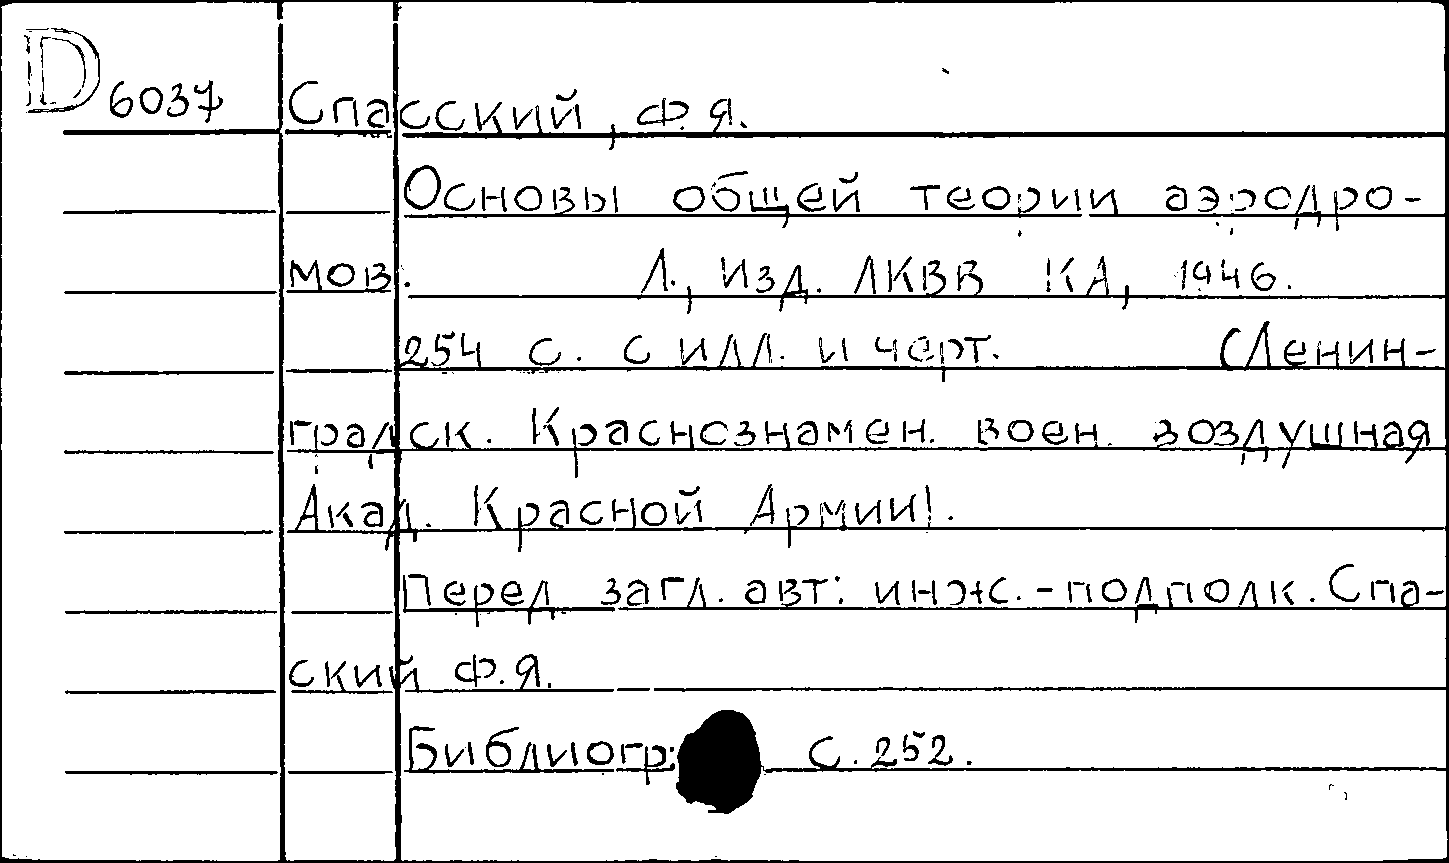 D 6037 Спасский, Ф.Я.
Основы общей теории аэродро-
мов. Л., Изд. ЛКВВ КА, 1946.
254 с. с илл. и черт. (Ленин-
градск. Краснознамен. воен. воздушная
Акад. Красной Армии).
Перед загл. авт: инж.-подполк. Спа-
ский Ф.Я.
Библиогр: С. 252.